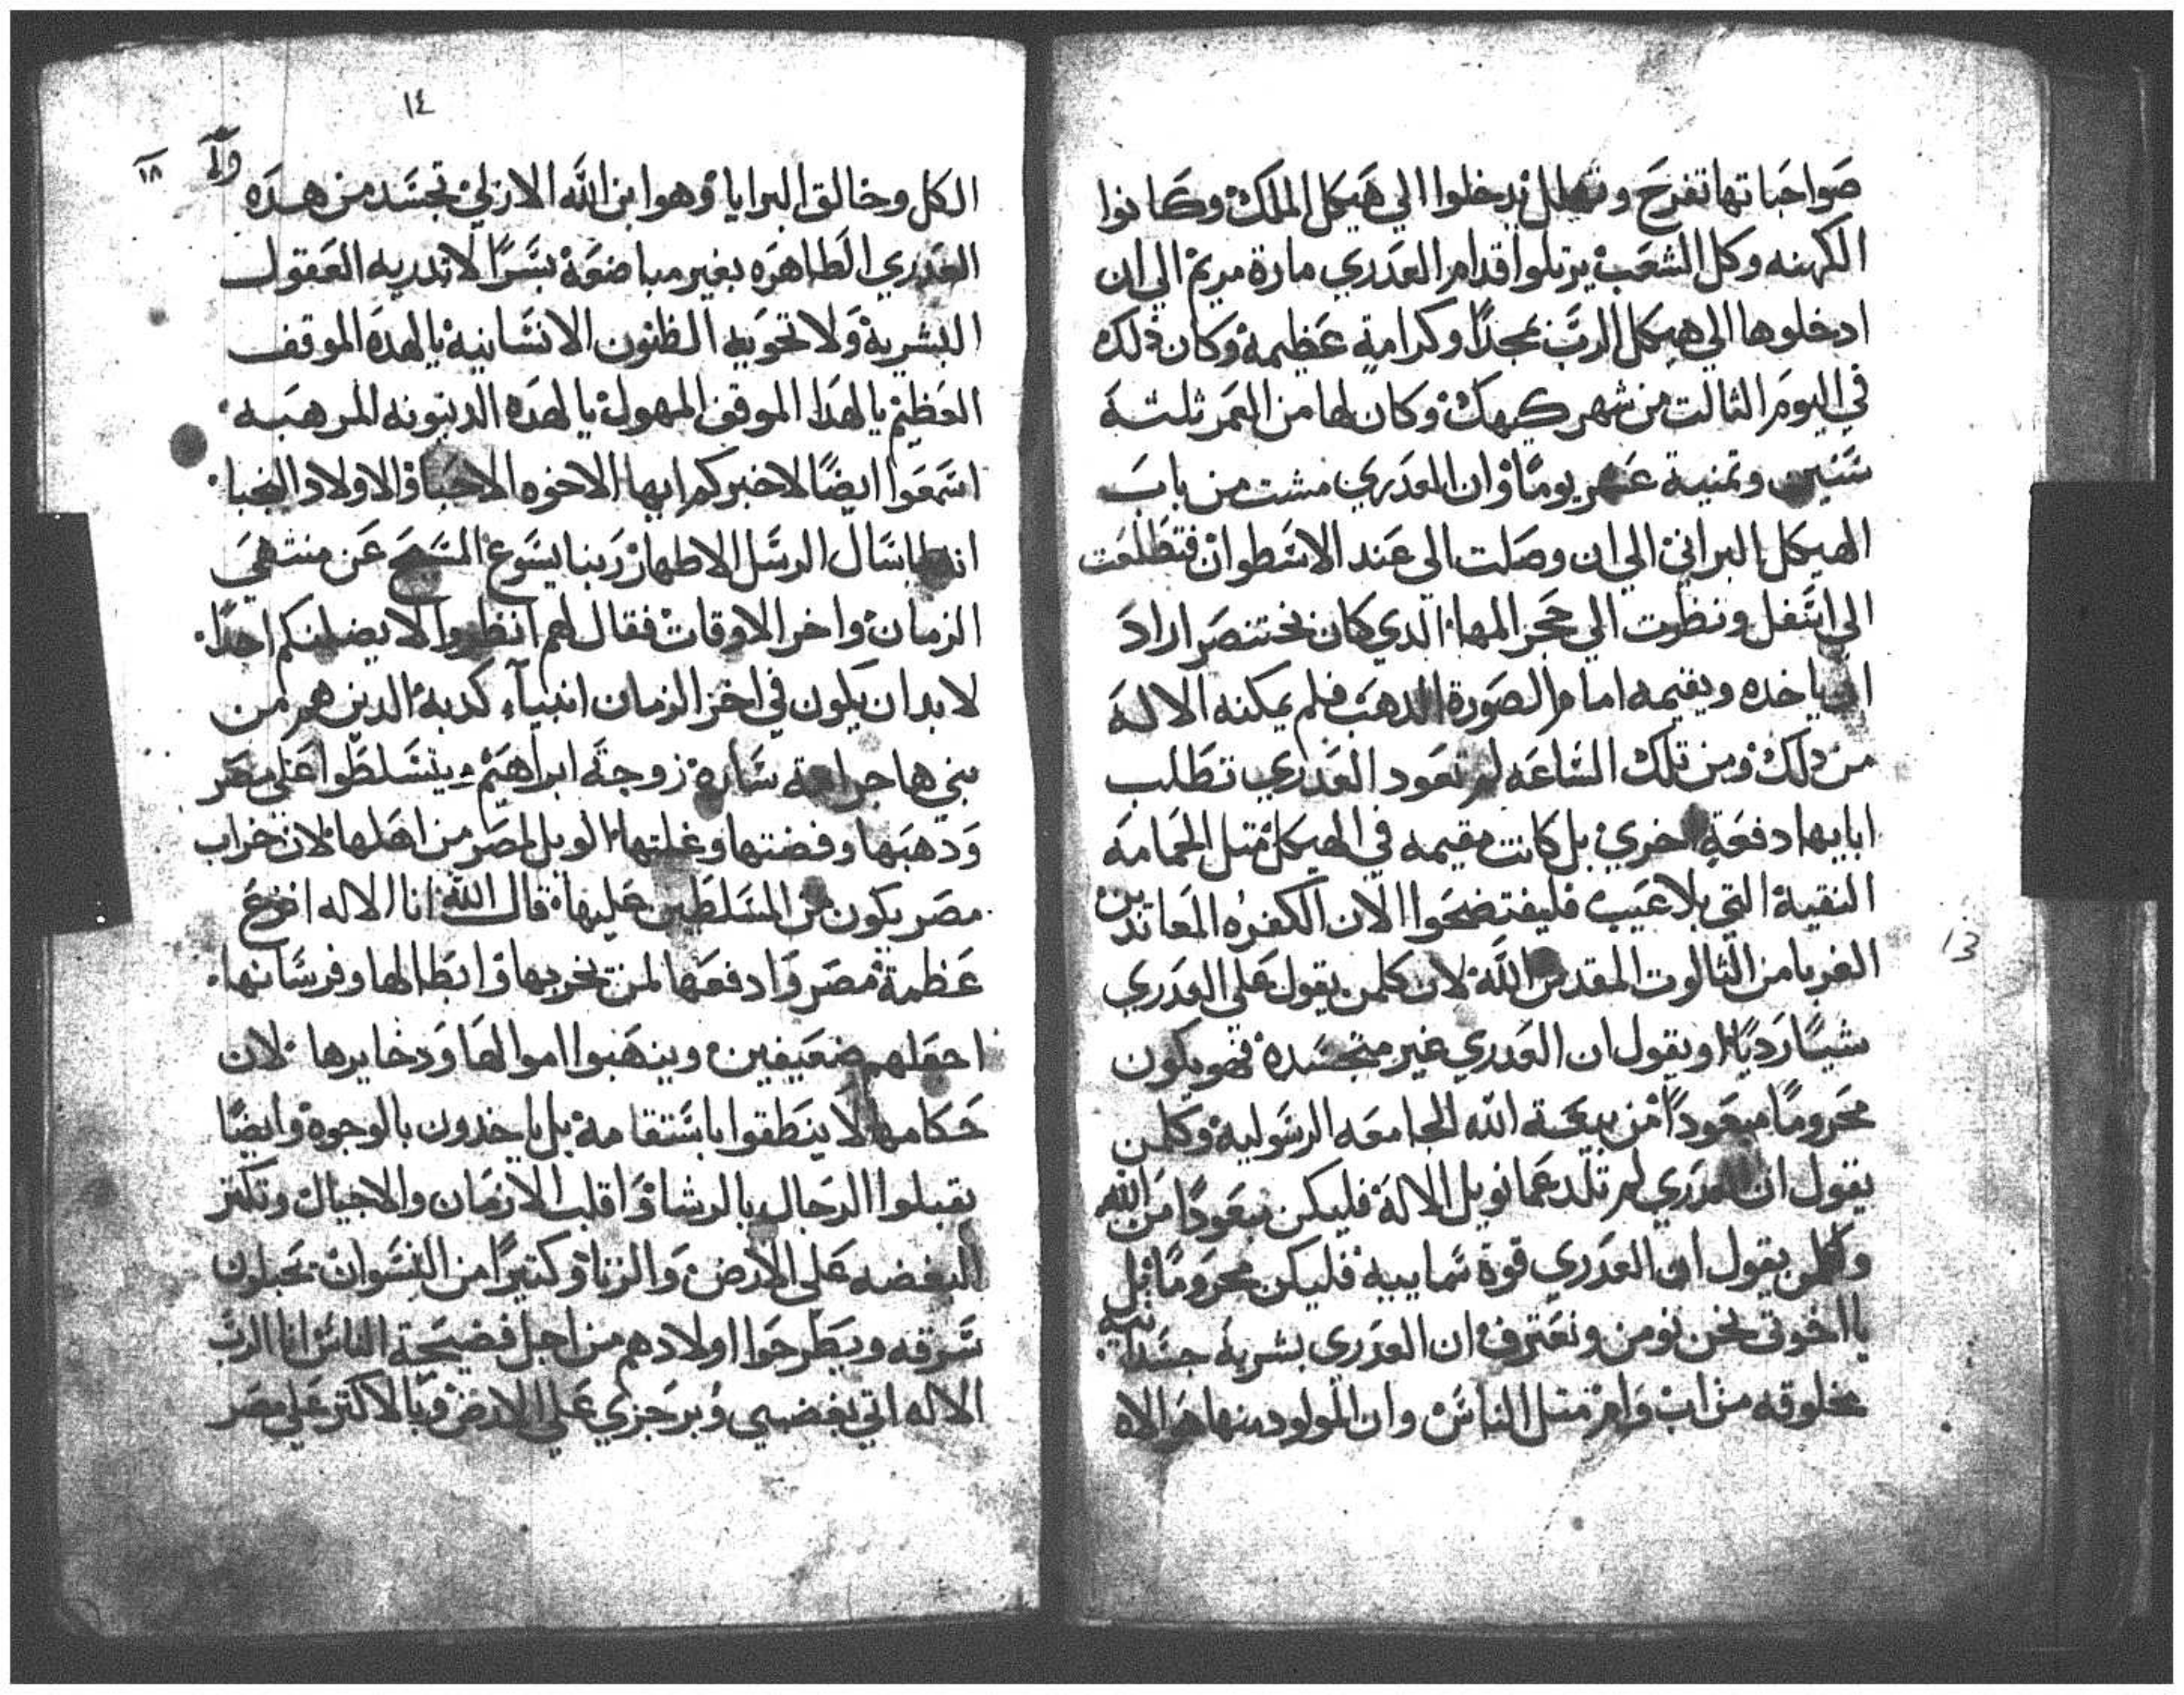 صواحباتها تفرح وتهلل يدخلوا الي هيكل الملك وكانوا
الكهنه وكل الشعب يرتلوا قدام العدري مارة مريم الي ان
ادخلوها الي هيكل الرب بمجدًا وكرامةٍ عظيمة وكان ذلك
في اليوم الثالت من شهر كيهك وكان لها من العمر ثلتة
سنين وتمنية عشر يومًا وان العدري مشت من باب
الهيكل البراني الي ان وصلت الي عند الاسطوان فتطلعت
الي اسفل ونظرت الي حجر المها الدي كان نختنصر اراد
ان ياخده ويقيمه امام الصورة الدهب فلم يمكنه الالة
من دلك ومن تلك الساعه لم تعود العدري تطلب
ابايها دفعةٍ اخري بل كانت مقيمه في الهيكل متل الحمامه
النقية التي بلا عيب فليفتضحوا الان الكفره المعاندين
الغربا من الثالوت المقدس الله لان كلمن يقول علي العدري
شيًا رديًا او يقول ان العدري غير متجسده فهو يكون
محرومًا مبعودًا من بيعة الله الجامعه الرسولية وكلمن
يقول ان العدري لم تلد عمانويل الالة فليكن مبعودًا من الله
وكلمن يقول ان العدري قوة سماييية فليكن محرومًا بل
يا اخوتي نحن نومن ونعترف ان العدري بشرية جسدانية
مخلوقه من اب وام متل الناس وان المولود منها هو الاه
13
١٤
١٨
الكل وخالق البرايا وهوا ابن الله الازلي تجسد من هده
العدري الطاهره بغير مباضعة بسرًا لا تدريه العقول
البشرية ولا تحويه الظنون الانسانيه يا لهده الموقف
العظيم يا لهدا الموقف المهول يا لهده الدينونه المرهبه
اسمعوا ايضًا لاخبركم ايها الاخوه الاحبا والاولاد النجبا
انه لما سال الرسل الاطهار ربنا يسوع المسيح عن منتهي
الزمان واخر الاوقات فقال لهم انظروا لا يضلنكم احدًا
لا بد ان يكون في اخر الزمان انبيآء كدبة الدين هم من
بني هاجر امة ساره زوجة ابراهيم يتسلطوا علي مصر
ودهبها وفضتها وغلتها الويل لمصر من اهلها لان خراب
مصر يكون من المسلطين عليها قال الله انا الاله انزع
عظمة مصر وادفعها لمن يخربها وابطالها وفرسانها
اجعلهم ضعيفين وينهبوا اموالها ودخايرها لان
حكامها لا ينطقوا باستقامة بل ياخدون بالوجوة وايضًا
يقبلوا الرجال بالرشا واقلب الازمان والاجيال وتكتر
البغضه علي الارض والزنا وكتيرًا من النسوان تحبلون
سرقه ويطرحوا اولادهم من اجل فضيحة الناس انا الرب
الاله اتي بغضبي وبرجزي علي الارض وبالاكتر علي مصر